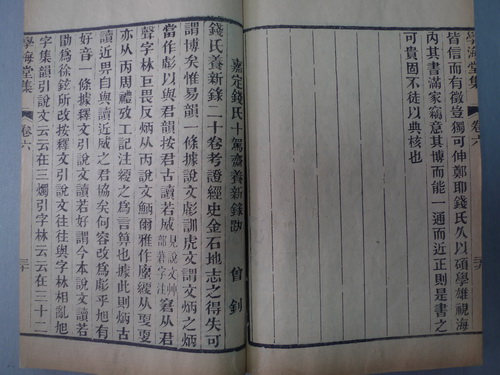 學海堂集 卷六
皆信而有徵豈獨可伸鄭耶錢氏久以碩學雄視海
內其書滿家竊意其博而能一通而近正則是書之
可貴固不徒以典核也
嘉定錢氏十駕齋養新錄跋 曾釗
錢氏養新錄二十卷考證經史金石地志之得失可
謂博矣惟易韻一條據說文彪訓虎文謂文炳之炳
當作彪以與君韻按君古讀若威見說文艸部莙字注窘从君
聲字林巨畏反炳从丙說文鮩爾雅作綆从更更
亦从丙周禮攷工記注綆之爲言也據此則炳古
讀近畀自與讀近威之君協矣何容改爲彪乎旭有
好音一條據釋文引說文讀若好謂今本說文讀若
勖爲徐鉉所改按釋文引說文往往與字林相亂旭
字集韻引說文云云在三燭引字林云云在三十二
學海堂集 卷六